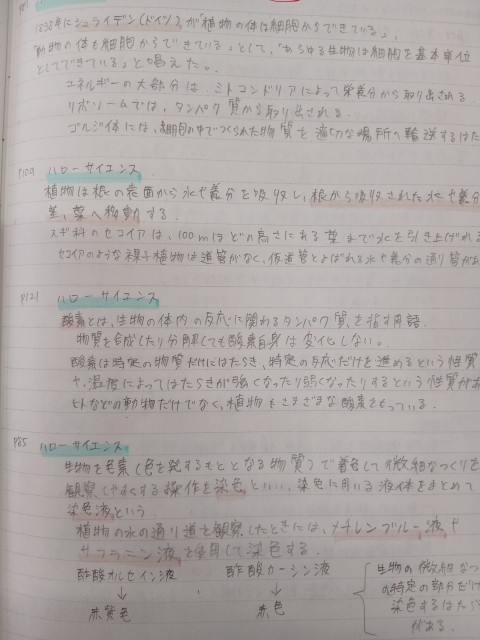 1838年にシュライデン(ドイツ)が「植物の体は細胞からできている」、
「動物の体も細胞からできている」として、「あらゆる生物は細胞を基本単位
としてできている」と唱えた。
エネルギーの大部分は、ミトコンドリアによって栄養分から取り出される
リボソームでは、タンパク質から取り出される。
ゴルジ体には、細胞の中でつくられた物質を適切な場所へ輸送するはた
P109 ハローサイエンス
植物は根の表面から水や養分を吸収し、根から吸収された水や養分
茎、葉へ移動する。
スギ科のセコイアは、100mほどの高さにある葉まで水を引き上げれる
セコイアのような裸子植物は道管がなく、仮道管とよばれる水や養分の通り管があ
P121 ハローサイエンス
酵素とは、生物の体内の反応に関わるタンパク質を指す用語。
物質を合成したり分解しても酵素自身は変化しない。
酵素は特定の物質だけにはたらき、特定の反応だけを進めるという性質
や、温度によってはたらきが強くなったり弱くなったりするという性質があ
ヒトなどの動物だけでなく、植物もさまざまな酵素をもっている。
P85 ハローサイエンス
生物を色素(色を発するもととなる物質)で着色して微細なつくりを
観察しやすくする操作を染色といい、染色に用いる液体をまとめて
染色液という。
植物の水の通り道を観察したときには、メチレンブルー液や
サフラニン液を使用して染色する。
酢酸オルセイン液 酢酸カーミン液
↓ ↓
赤紫色 赤色
生物の微細なつ
の特定の部分だけ
染色するはたら
がある。